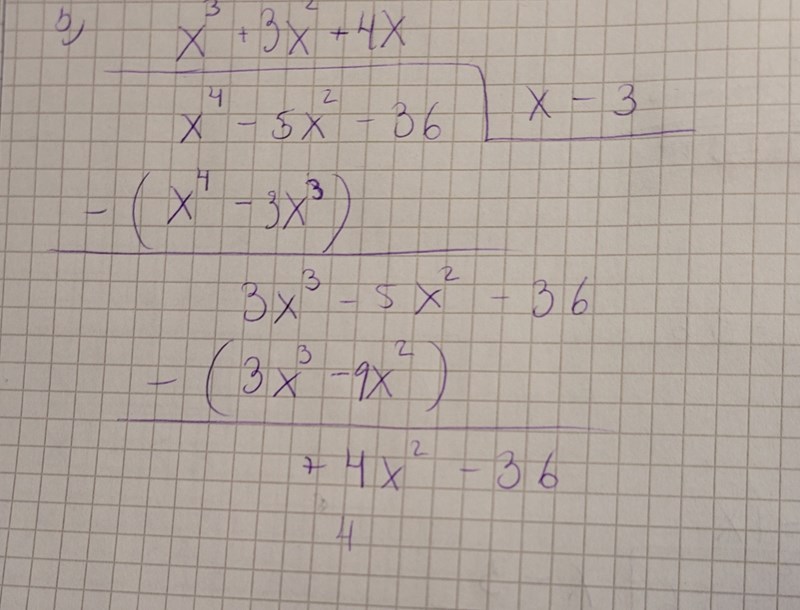 b) x³ + 3x² + 4x
x⁴ - 5x² - 36 x - 3
- (x⁴ - 3x³)
3x³ - 5x² - 36
- (3x³ - 9x²)
+ 4x² - 36
4